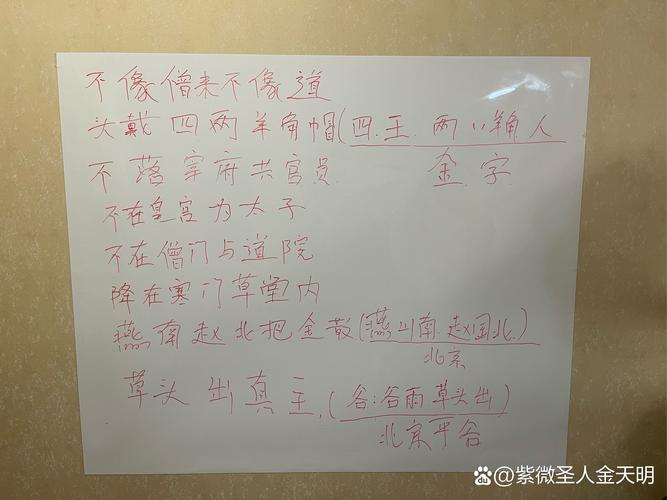 不像僧来不像道
头戴四两羊角帽(四.王.两丷羊角人
金字
不落宰府共官员
不在皇宫为太子
不在僧门与道院
降在寒门草堂内
燕南赵北把金散(燕山南.赵国北.)
北京
草头出真主.(谷:谷雨草头出)
北京平谷
@紫微圣人金天明